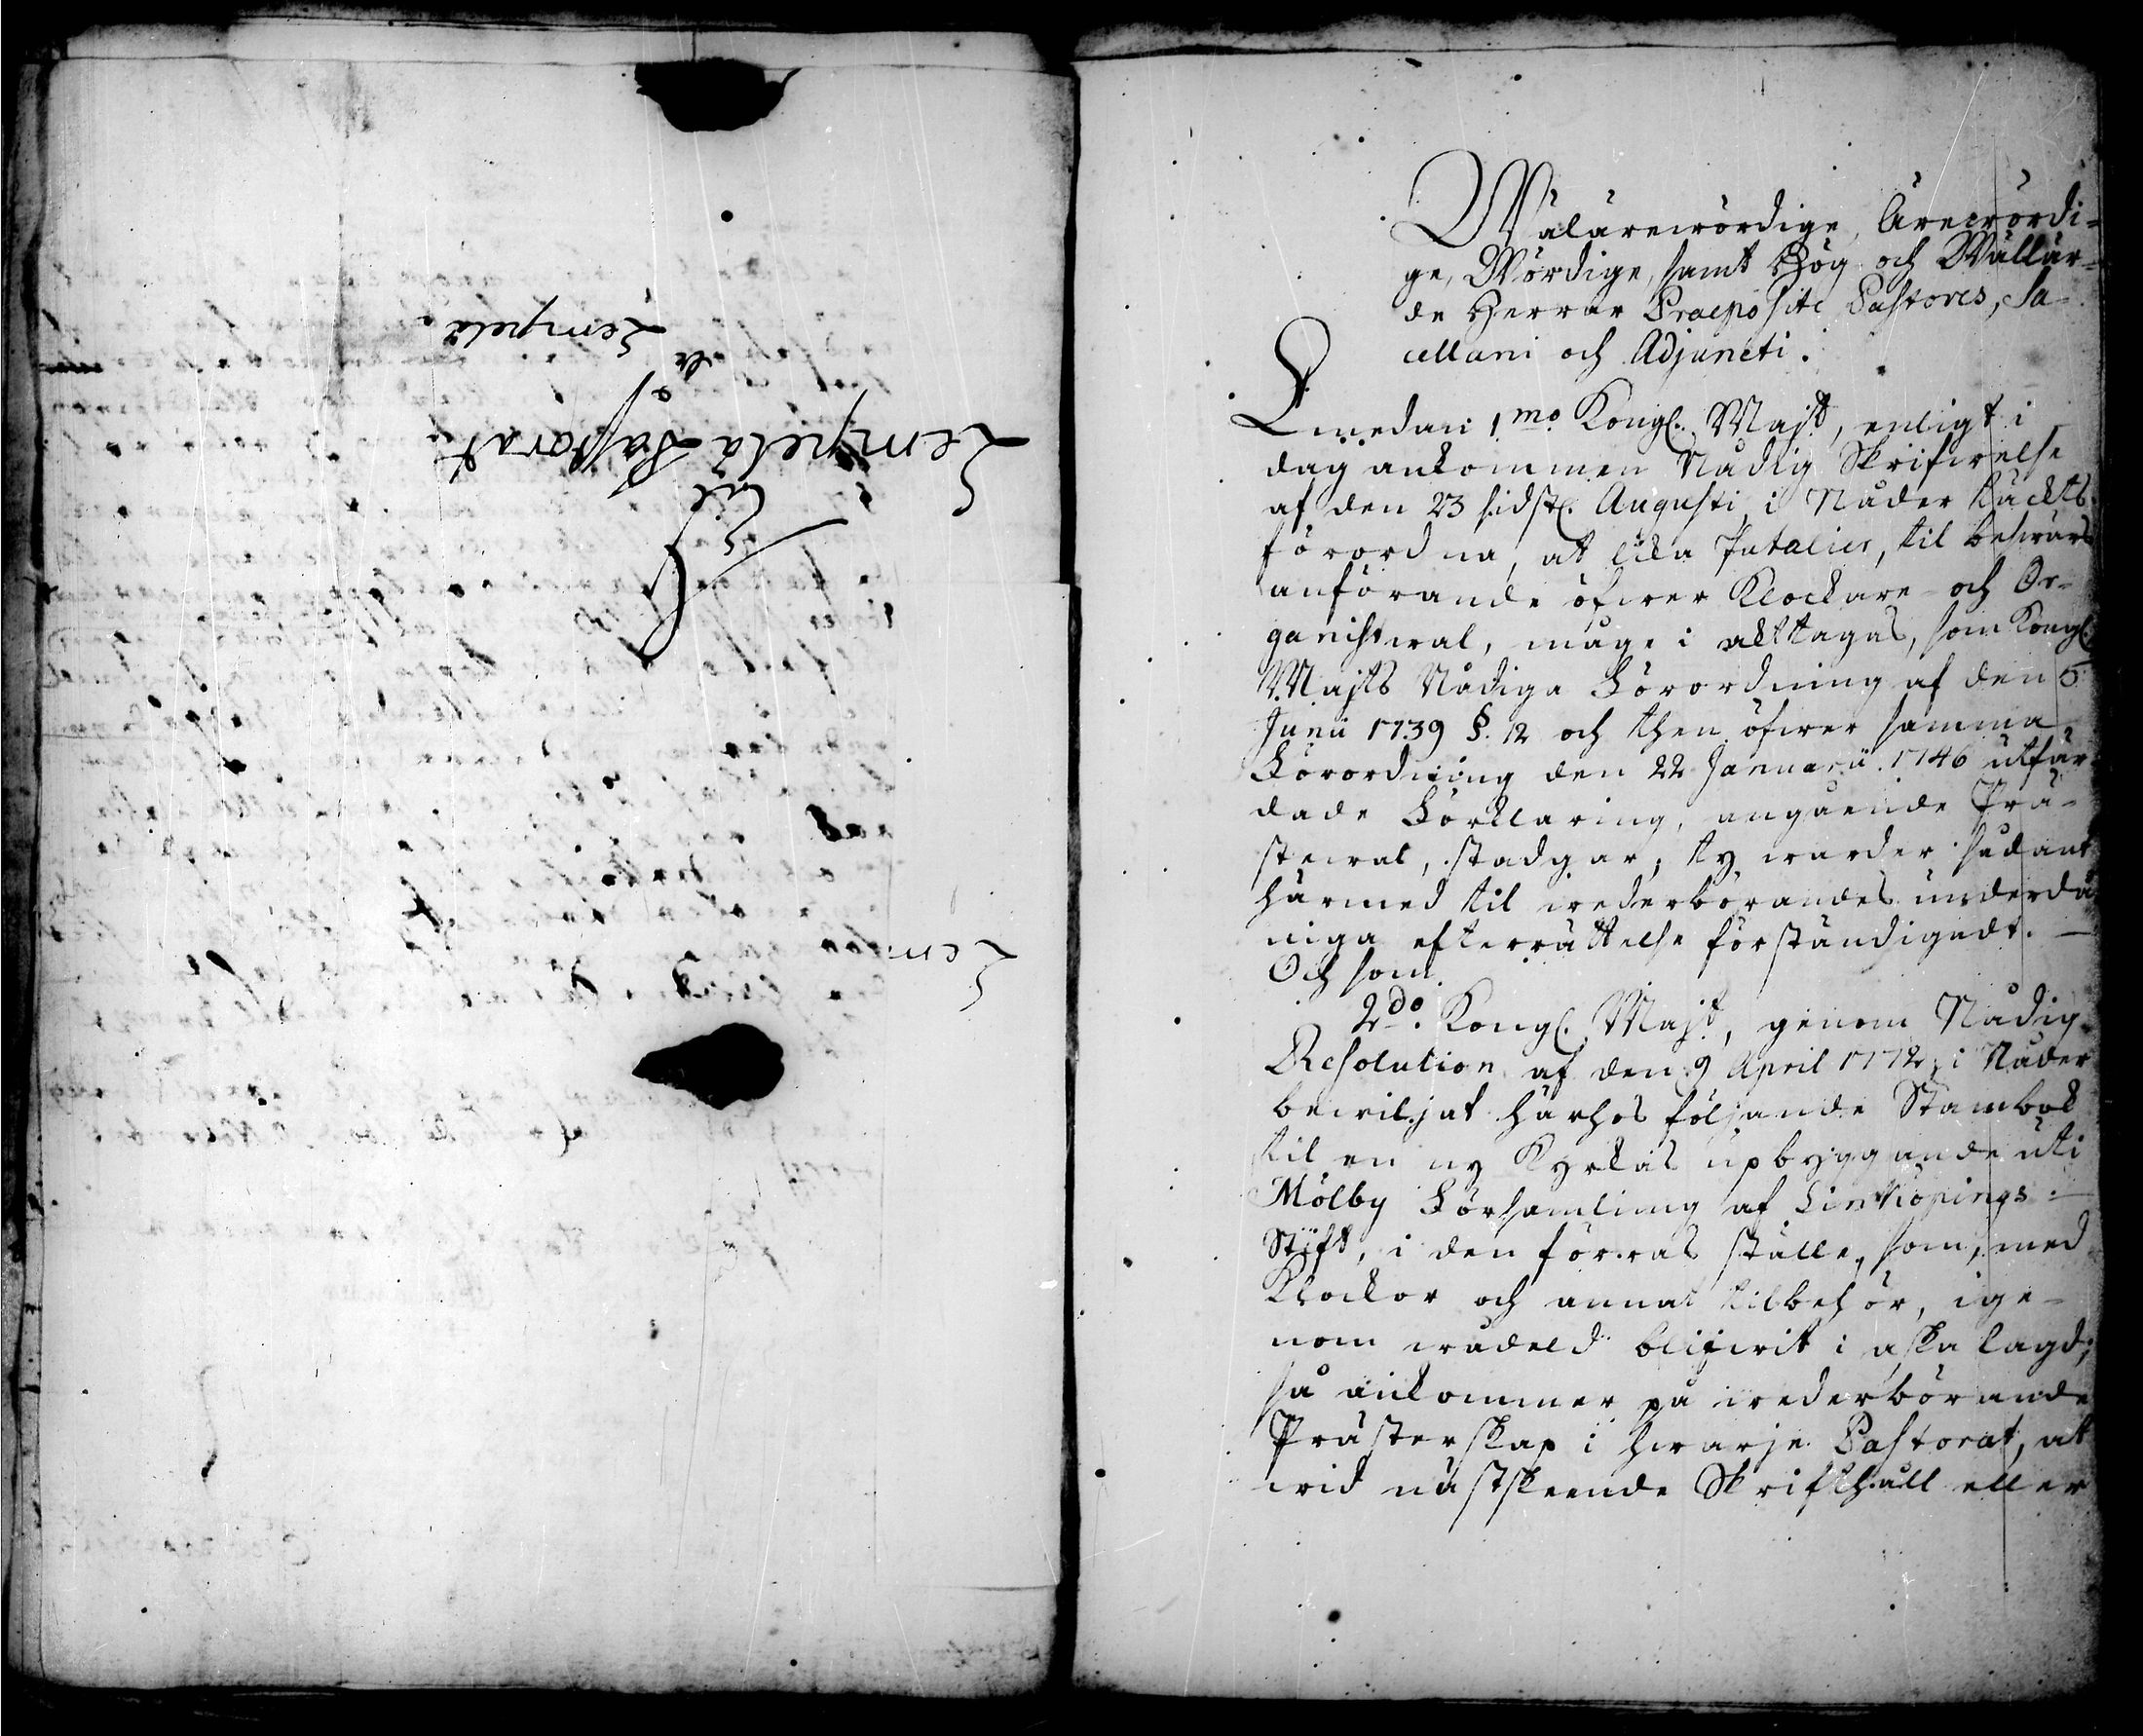 Til
Lempelä Pastorat
af
de
Lempelä.
Lem
Wälärewördige, Ärewördi-
ge, Wördige, samt Hög och Wällär-
de Herrar Praepositi Pastores, Sa-
cellani och Adjuncti.
Emedan 1.mo Kongl. Majt, enligt i
dag ankommen Nådig Skrifwelse
af den 23 sidstl. Augusti, i Nåder täckts
förordna, at lika Fatalier, til beswärs
anförande öfwer Klockare- och Or-
ganistwal, måge i akttagas, som Kongl.
Majts Nådiga Förordning af den 5
Junii 1739 §. 12 och then öfwer samma
Förordning den 22 Januarii 1746 utfär-
dade Förklaring, angående Prä-
stewal, stadgar; ty warder sådant
härmed til wederbörandes underdå
niga efterrättelse förständigadt. —
Och som
2do. Kongl. Majt, genom Nådig
Resolution af den 9 April 1772, i Nåder
bewiljat härhos följande Stambok
til en ny Kyrkas upbyggande uti
Mölby Församling af Linkiöpings
Stift, i den förras ställe, som, med
Klockor och annat tilbehör, ige-
nom wådeld blifwit i aska lagd;
så ankommer på wederbörande
Prästerskap i hwarje Pastorat, at
wid nästskeende Skrifthåll eller